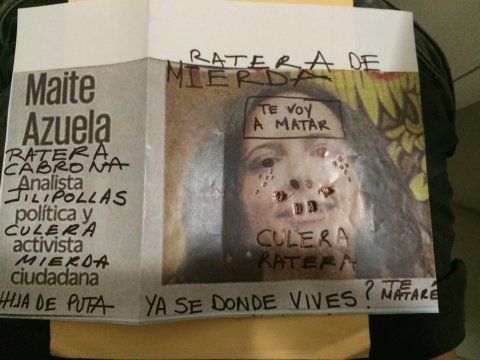 RATERA DE
MIERDA
Maite
Azuela
RATERA
CABRONA
Analista
JILIPOLLAS
política y
CULERA
activista
MIERDA
ciudadana
HIJA DE PUTA
TE VOY
A MATAR
CULERA
RATERA
YA SE DONDE VIVES?
TE
MATARÉ